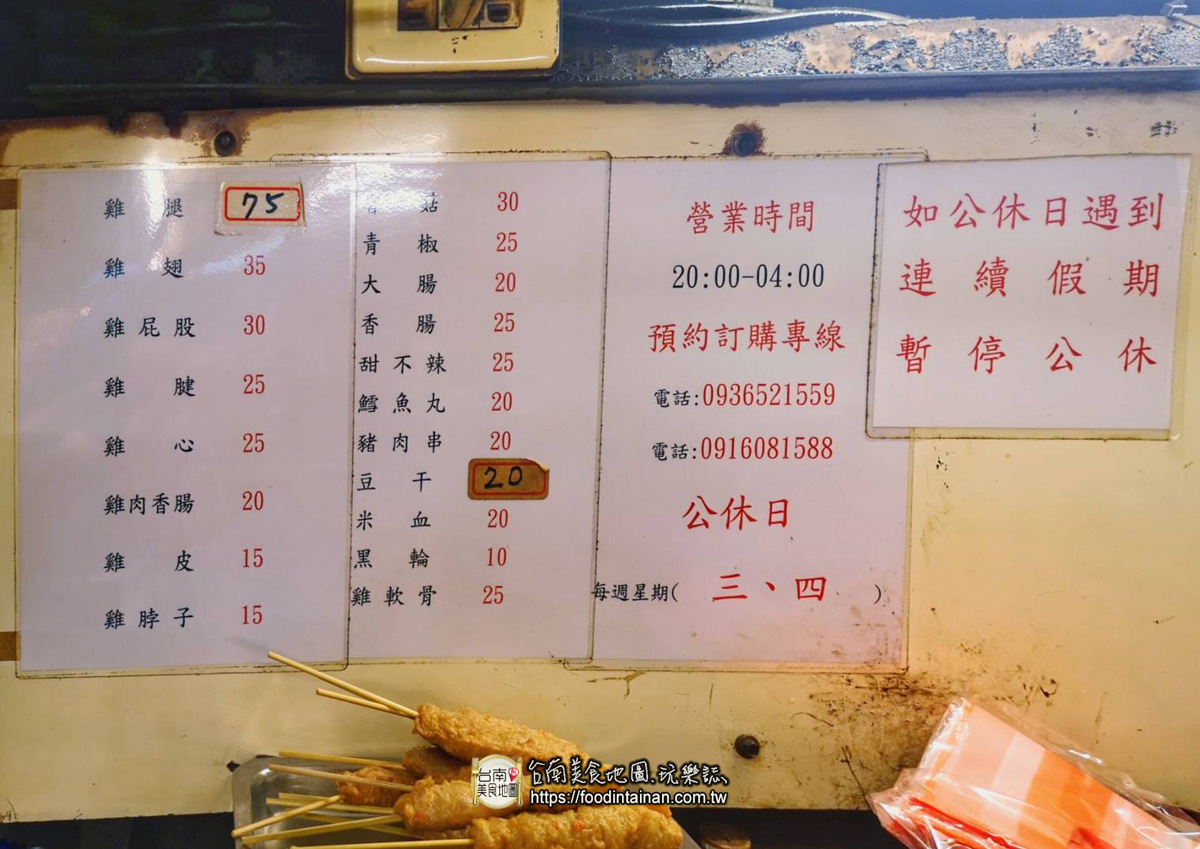 雞腿 75
雞翅 35
雞屁股 30
雞腱 25
雞心 25
雞肉香腸 20
雞皮 15
雞脖子 15
香菇 30
青椒 25
大腸 20
香腸 25
甜不辣 25
鱈魚丸 20
豬肉串 20
豆干 20
米血 20
黑輪 10
雞軟骨 25
營業時間
20:00-04:00
預約訂購專線
電話:0936521559
電話:0916081588
公休日
每週星期( 三、四 )
如公休日遇到
連續假期
暫停公休
台南美食地圖
台南美食地圖.玩樂誌
https://foodintainan.com.tw